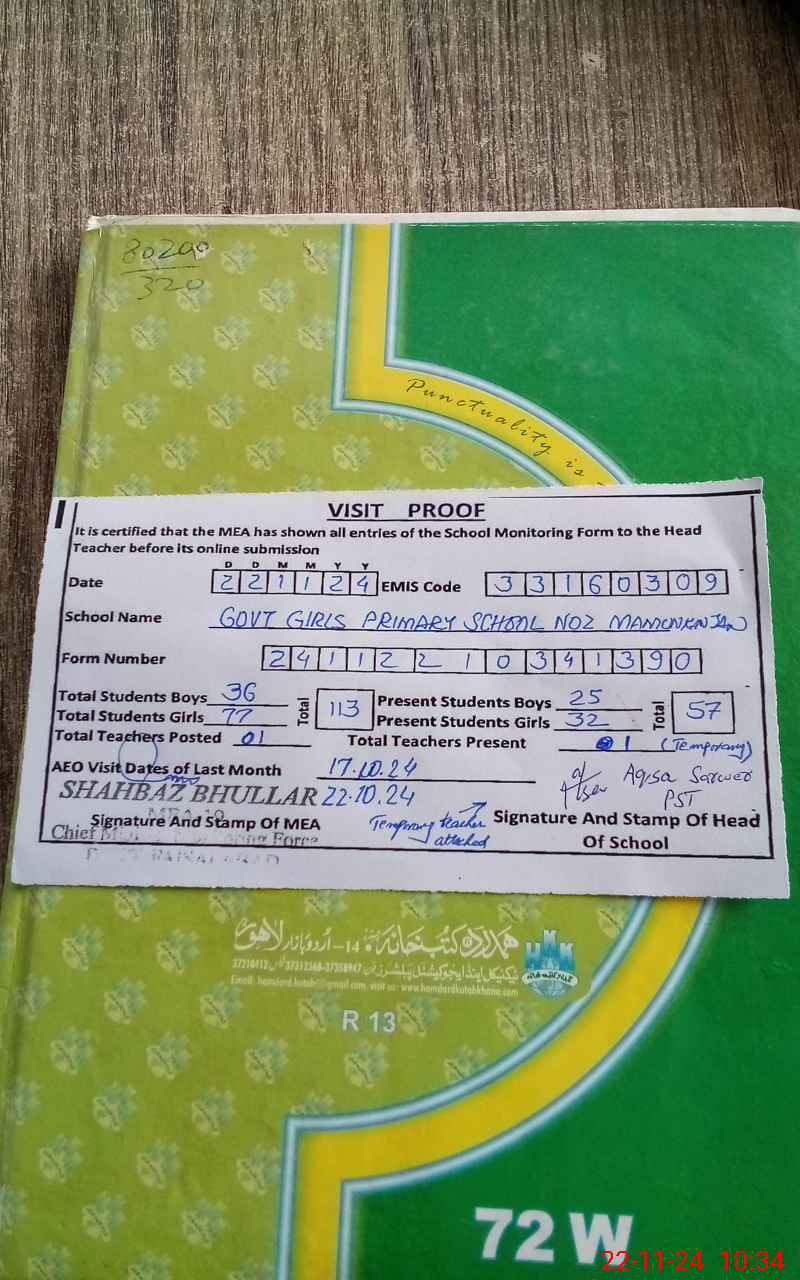 80200
320
Punctuality is
VISIT PROOF
It is certified that the MEA has shown all entries of the School Monitoring Form to the Head
Teacher before its online submission
D D M M Y Y
Date 2 2 1 1 2 4 EMIS Code 3 3 1 6 0 3 0 9
School Name GOVT GIRLS PRIMARY SCHOOL NO2 MAMONKNJAN
Form Number 2 4 1 1 2 2 1 0 3 4 1 3 9 0
Total Students Boys 36 Total 113 Present Students Boys 25 Total 57
Total Students Girls 77 Present Students Girls 32
Total Teachers Posted 01 Total Teachers Present 1 (Temporary)
AEO Visit Dates of Last Month 17.10.24
Aqsa Sarwar
SHAHBAZ BHULLAR 22.10.24 PST
Signature And Stamp Of MEA Temporary teacher attached Signature And Stamp Of Head
Of School
Chief
ہمدرد کتب خانہ 14-اردو بازار لاہور
37210412 37312568-37358947
Email: visit us: www.hamdardkutabkhana.com
HKK
R 13
72 W
22-11-24 10:34